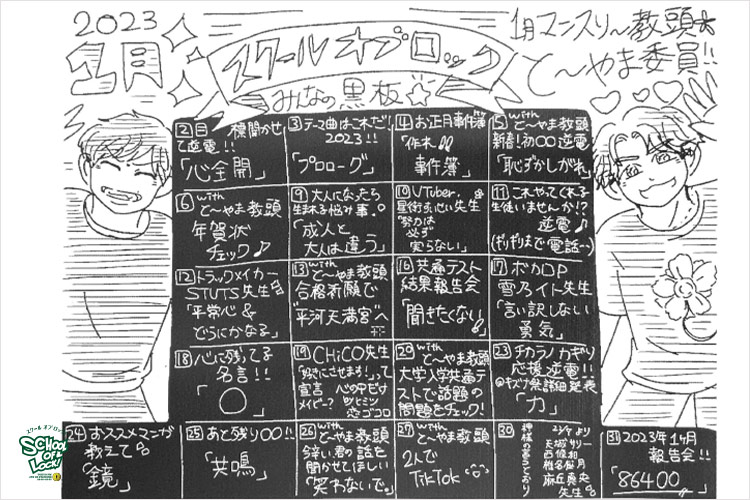 2023
1月
スクールオブロック
みんなの黒板☆
1月マンスリ〜教頭☆
と〜やま委員!!
2日
襟聞かせ
て逆電!!
「心全開」
3 テーマ曲はこれだ!
2023!!
「プロローグ」
4 お正月事件簿
「作木
事件簿」
5 with と〜やま教頭
新春!初〇〇逆電
「恥ずかしがれ」
6 with
と〜やま教頭
年賀状
チェック♪
9 大人になったら
生まれる悩み事。
「成人と
大人は違う」
10 VTuber.
星街すいせい先生
"努力は
必ず
実らない"
11 これやってくれる
生徒いませんか!?
逆電♪
(ギリギリまで電話…)
12 トラックメイカー
STUTS先生
「平常心&
どうにかなる」
13 with
と〜やま教頭
合格祈願で
"平河天満宮"へ
16 共通テスト
結果報告会
「聞きたくない」
17 ボカロP
雪乃イト先生
「言い訳しない
勇気」
18 心に残ってる
名言!!
「〇」
19 CHiCO先生
宣言
メイビー?
20 with
と〜やま教頭
大学入学共通テ
ストで話題の
問題をチェック!
23 チカラノカギリ
応援逆電!!
@キズナ祭詳細発表
「力」
24 おススメマンガ
教えて
「鏡」
25 あと残り〇〇!!
「共鳴」
26 with
と〜やま教頭
辛い君の話を
聞かせてほしい
「笑わないで。」
27 with
と〜やま教頭
2人で
TikTok
30
神様の言うとおり
22/7より
天城サリー
西條和
椎名桜月
麻丘真央
先生
31 2023年1月
報告会!!
「86400」
スクールオブロック
SCHOOL
OF
LOCK!